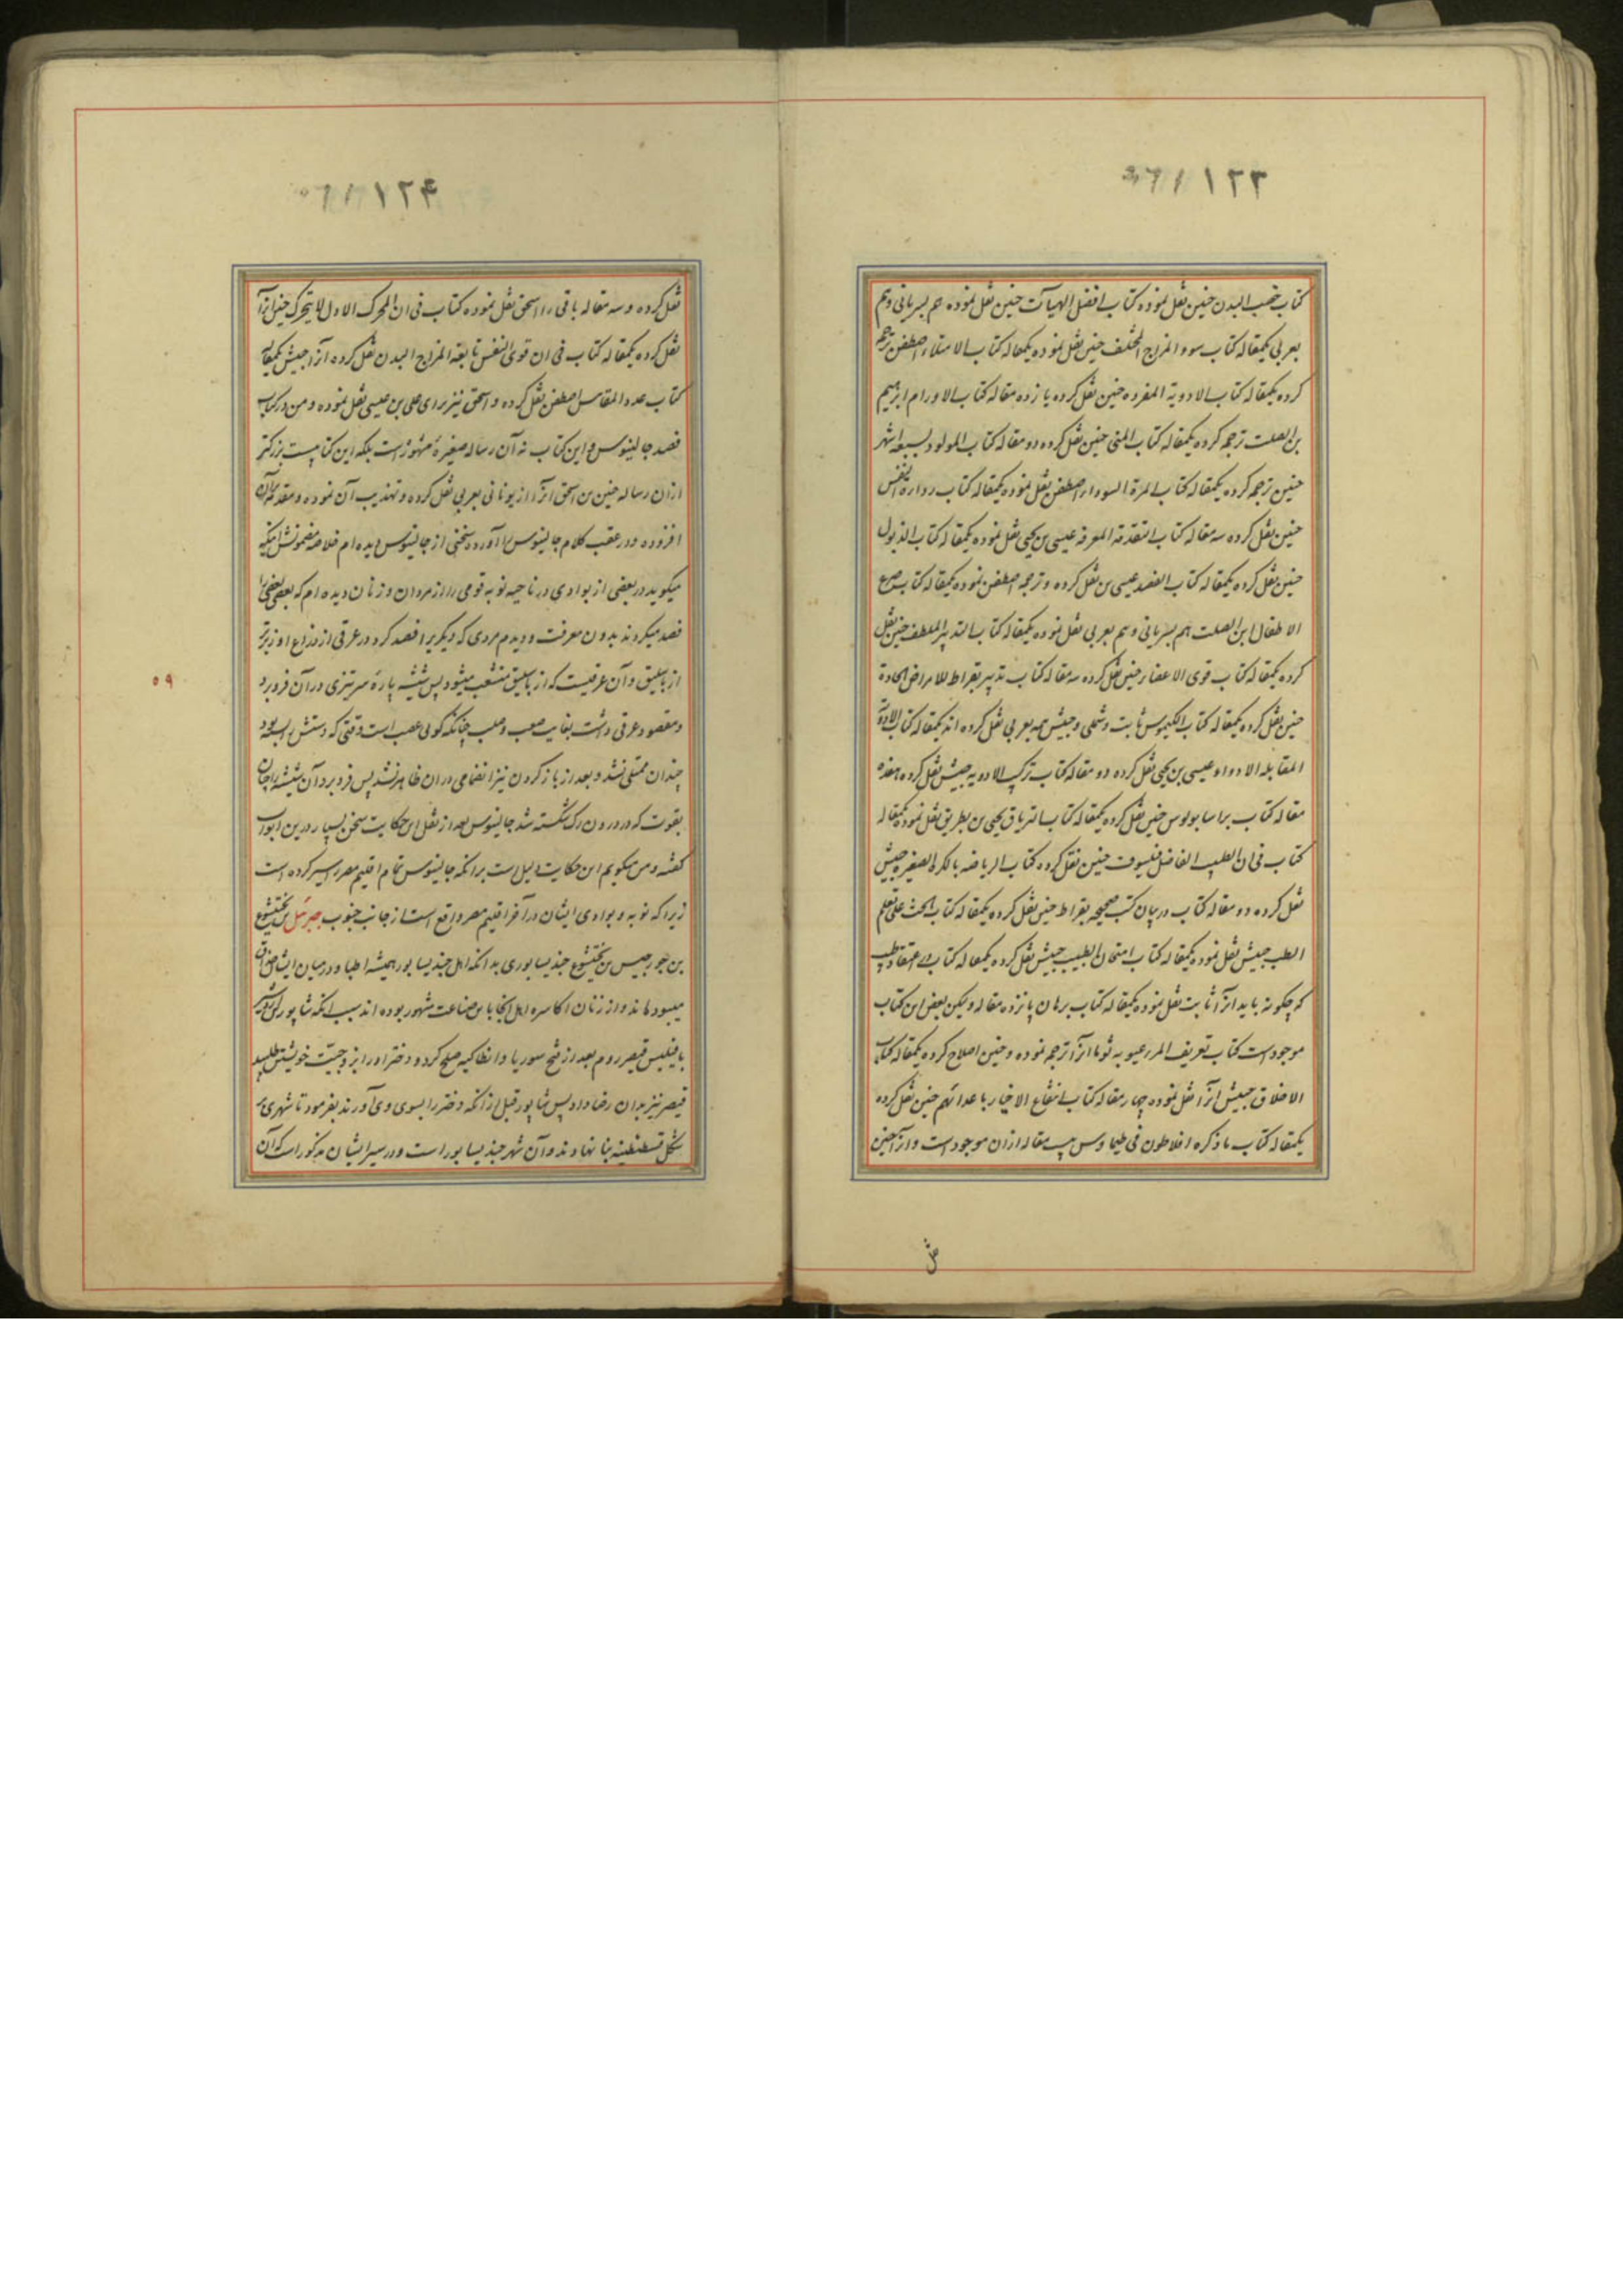 ١٢٣
كتاب خصب البدن حنين نقل نموده كتاب افضل الهيآت حنين نقل نموده هم بسرياني وهم
بعربي يكمقاله كتاب سوء المزاج المختلف حنين نقل نموده يكمقاله كتاب الامتلاء اصطفن ترجمه
كرده يكمقاله كتاب الادوية المفرده حنين نقل كرده يازده مقاله كتاب الاورام ابرهيم
بن الصلت ترجمه كرده يكمقاله كتاب المني حنين نقل كرده دو مقاله كتاب المولود لسبعة اشهر
حنين ترجمه كرده يكمقاله كتاب المرة السوداء اصطفن نقل نموده يكمقاله كتاب رداءة النفس
حنين نقل كرده سه مقاله كتاب التقدمة المعرفة عيسى بن يحيى نقل نموده يكمقاله كتاب الذبول
حنين نقل كرده يكمقاله كتاب الفصد عيسى بن نقل كرده و ترجمه اصطفن نموده يكمقاله كتاب صرع
الاطفال ابن الصلت هم بسرياني وهم بعربي نقل نموده يكمقاله كتاب التدبير الملطف حنين نقل
كرده يكمقاله كتاب قوى الاغذيه حنين نقل كرده سه مقاله كتاب تدبير بقراط للامراض الحادة
حنين نقل كرده يكمقاله كتاب الكيموس ثابت و شملى و حبيش همه بعربي نقل كرده اند يكمقاله كتاب الادوية
المقابله الادواء عيسى بن يحيى نقل كرده دو مقاله كتاب تركيب الادويه حبيش نقل كرده هفده
مقاله كتاب براسابولوس حنين نقل كرده يكمقاله كتاب الترياق يحيى بن بطريق نقل نموده يكمقاله
كتاب في ان الطبيب الفاضل فيلسوف حنين نقل كرده كتاب الرياضه بالكره الصغيره حبيش
نقل كرده دو مقاله كتاب در بيان كتب صحيحه بقراط حنين نقل كرده يكمقاله كتاب الحث على تعلم
الطب حبيش نقل نموده يكمقاله كتاب امتحان الطبيب حبيش نقل كرده يكمقاله كتاب در اعتقاد طبيب
كه چگونه بايد انرا ثابت نقل نموده يكمقاله كتاب برهان پانزده مقاله وليكن بعض اين كتاب
موجود است كتاب تعريف المرء عيوبه توما انرا ترجمه نموده و حنين اصلاح كرده يكمقاله كتاب
الاخلاق حبيش انرا نقل نموده چهار مقاله كتاب انتفاع الاخيار باعدائهم حنين نقل كرده
يكمقاله كتاب ماذكره افلاطون في طيماوس بيست مقاله ازان موجود است وانرا حنين
نقل
١٢٤
نقل كرده و سه مقاله باقى را اسحق نقل نموده كتاب في ان المحرك الاول لا يتحرك حنين انرا
نقل كرده يكمقاله كتاب في ان قوى النفس تابعة المزاج البدن نقل كرده انرا حبيش يكمقاله
كتاب عدد المقاييس اصطفن نقل كرده و اسحق نيز براى على بن عيسى نقل نموده و من در كتاب
فصد جالينوس و اين كتاب نه آن رساله صغيرهٔ مشهور است بلكه اين كتابيست بزركتر
ازان رساله حنين بن اسحق انرا از يوناني بعربي نقل كرده و تهذيب آن نموده و مقدمه بران
افزوده و در عقب كلام جالينوس را آورده سخنى از جالينوس ديده ام خلاصه مضمونش اينكه
ميگويد در بعضى از بوادى در ناحيه نوبه قومى را از مردان و زنان ديده ام كه بعضى بعضى را
فصد ميكردند بدون معرفت و ديدم مردى كه ديگريرا فصد كرد در عرقى از ذراع او زيرتر
از باسليق و آن عرقيست كه از باسليق منشعب ميشود پس شيشه پاره سر تيزى در آن فرو برد
و مقصود عرقى داشت بغايت صعب و صلب چنانكه گوئى عصب است وقتى كه دستش را بسته بود
چندان ممتلى نشد و بعد از باز كردن نيز انضمامى دران ظاهر نشد پس فرو برد آن شيشه را چنان
بقوت كه در درون رك شكسته شد جالينوس بعد از نقل اين حكايت سخن بسيار درين ابواب
گفته و من ميگويم اين حكايت دليل است برانكه جالينوس تمام اقليم مصر را سير كرده است
زيرا كه نوبه و بوادى ايشان در آخر اقليم مصر واقع است از جانب جنوب جبرئيل بن بختيشوع
بن جورجيس بن بختيشوع جنديسابورى بدانكه اهل جنديسابور هميشه اطبا و در ميان ايشان حذاق
ميبوده اند و از زمان اكاسره اهل انجا باين صناعت مشهور بوده اند بسبب انكه شاپور بن اردشير
با فيلبس قيصر روم بعد از فتح سوريا و انطاكيه صلح كرد و دختر او را بزوجيت خويشتن طلبيد
قيصر نيز بدان رضا داد پس شاپور قبل از انكه دختر را بسوى وى آورند بفرمود تا شهرى بر
شكل قسطنطنيه بنا نهادند و آن شهر جنديسابور است و در سير ايشان مذكور است كه آن
٥٩